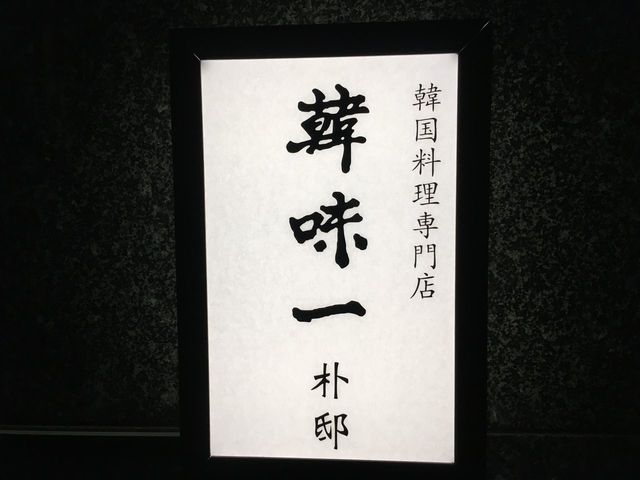 韓国料理専門店
韓味一
朴邸